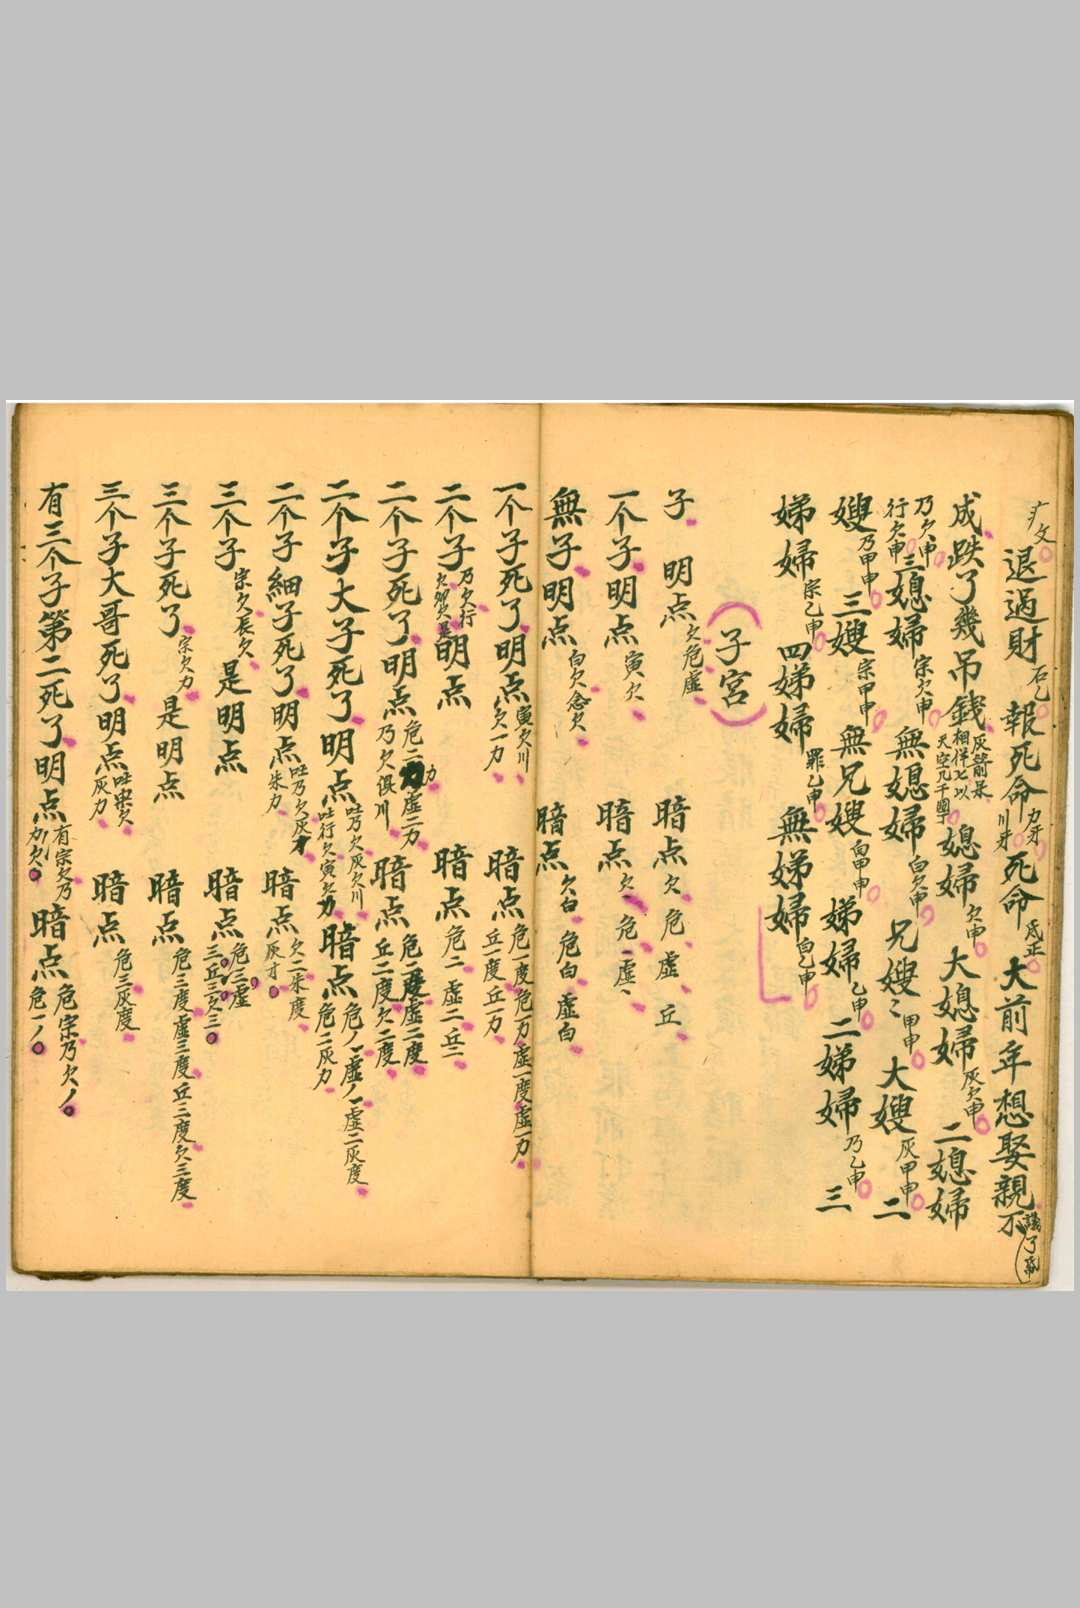 疒攵 退過財石乙 報死命力歹川歹 死命戍正 大前年想娶親不
成跌了幾吊錢 媳婦欠申 大媳婦灰欠申 二媳婦
乃欠申行欠申 三媳婦宗欠申 無媳婦白欠申 兄嫂〻甲申 大嫂灰甲申 二
嫂乃甲申 三嫂宗甲申 無兄嫂白甲申 娣婦乙申 二娣婦乃乙申 三
娣婦宗乙申 四娣婦罪乙申 無娣婦白乙申
子宮
子 明点欠危虛 暗点欠危虛丘
一个子明点寅欠 暗点欠一危一虛一
無子明点白欠念欠 暗点欠白危白虛白
一个子死了明点寅欠川欠一力 暗点危一度危力虛一度虛一力丘一度丘一力
二个子乃欠行 明点 暗点危二虛二丘二
二个子死了明点危二力虛二力乃欠 川 暗点危二度虛二度丘二度欠二度
二个子大子死了明点吐乃欠灰欠川吐行欠寅欠力 暗点危ノ一虛ノ一虛二灰度危二灰力
二个子細子死了明点吐乃欠灰才朱力 暗点欠二朱度灰寸
三个子宗欠辰欠 是明点 暗点危三虛三丘三欠三
三个子死了宗欠力 是明点 暗点危三度虛三度丘三度欠三度
三个子大哥死了明点吐 欠灰力 暗点危三灰度
有三个子第二死了明点有宗欠乃力欠 暗点危宗乃欠ノ危一ノ